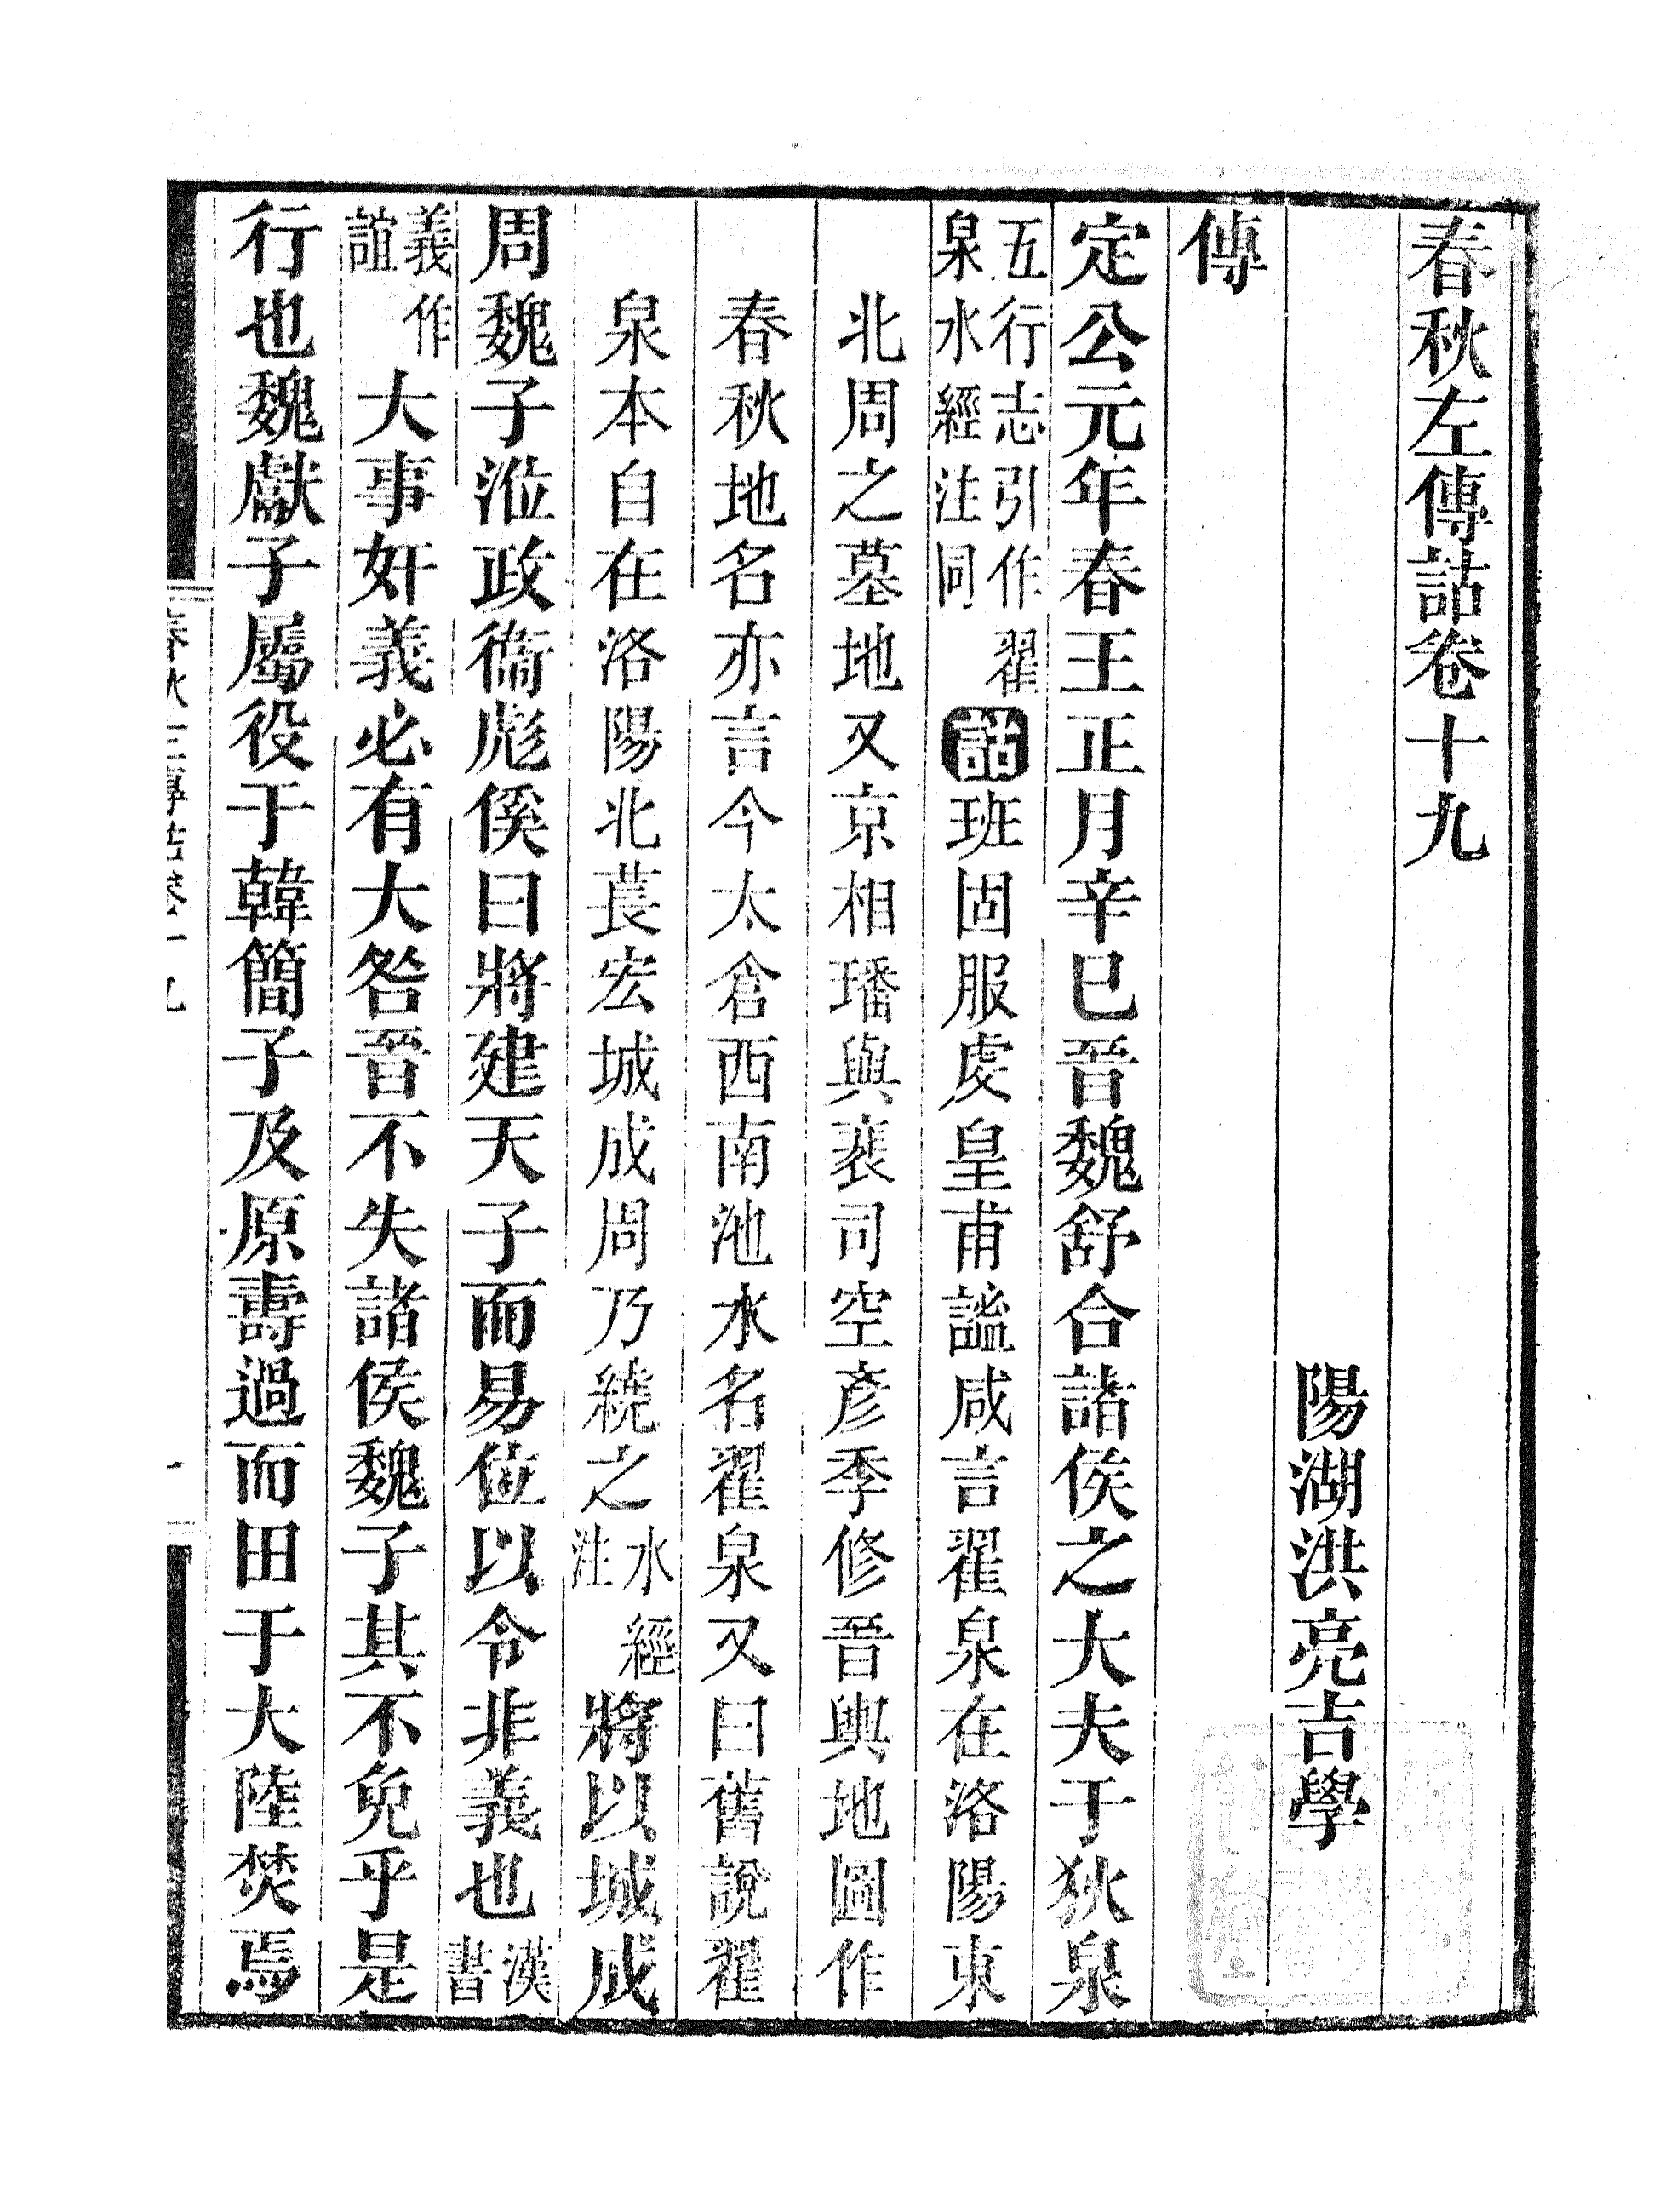 春秋左傳詁卷十九
陽湖洪亮吉學
傳
定公元年春王正月辛巳晉魏舒合諸侯之大夫于狄泉
五行志引作翟
泉水經注同
詁班固服虔皇甫謐咸言翟泉在洛陽東
北周之墓地又京相璠與裴司空彥季修晉輿地圖作
春秋地名亦言今太倉西南池水名翟泉又曰舊說翟
泉本自在洛陽北萇宏城成周乃繞之
水經
注
將以城成
周魏子涖政衞彪傒曰將建天子而易位以令非義也
漢
書
義作
誼
大事奸義必有大咎晉不失諸侯魏子其不免乎是
行也魏獻子屬役于韓簡子及原壽過而田于大陸焚焉